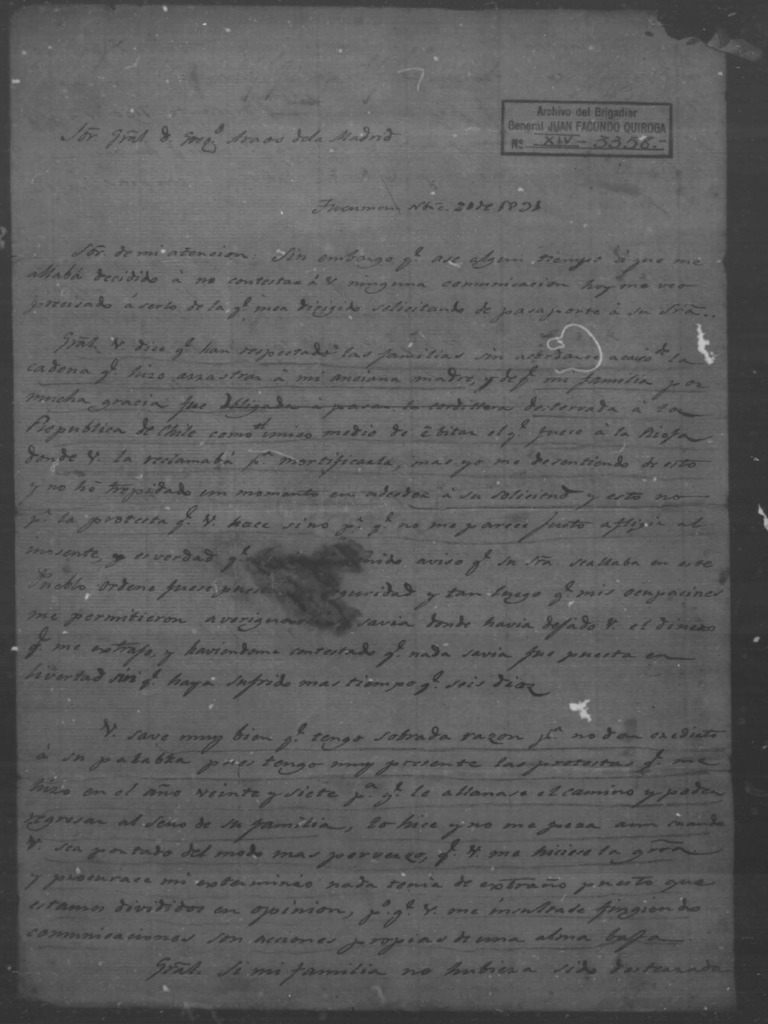 Archivo del Brigadier
General JUAN FACUNDO QUIROGA
Nº XIV - 3356.-
Sōr. Gral. D. Greg.º Araos de la Madrid
Tucuman Nbre. 21 de 1831
Sōr. de mi atencion: Sin embargo q.e ase algun tiempo á que me
allaba decidido á no contestar á V. ninguna comunicacion hoy me veo
precisado á serlo de la q.e mea dirigido solicitando de pasaporte á su Sra..
Gral. V. dice q.e han respetado las familias sin acordarse acaso de la
cadena q.e hizo arrastrar á mi anciana madre, y de q.e mi familia por
mucha gracia fue obligada á pasar la cordillera desterrada á la
Republica de Chile, como unico medio de ebitar el q.e fuese á la Rioja
donde V. la reclamaba p.a mortificarla, mas yo me desentiendo de esto
y no hé trepidado un momento en acceder á su solicitud y esto no
p.r la protesta q.e V. hace sino p.r q.e no me parece justo afligir al
inosente, y es verdad q.e aviso q.e su Sra. seallaba en este
Pueblo ordené fuese seguridad y tan luego q.e mis ocupaciones
me permitieron averiguar savia donde havia dejado V. el dinero
q.e me extrajo, y haviendome contestado q.e nada savia fue puesta en
livertad sin q.e haya sufrido mas tiempo q.e seis dias
V. save muy bien q.e tengo sobrada razon p.a no dar credito
á su palabra pues tengo muy presente las protestas q.e me
hizo en el año veinte y siete p.a q.e le allanase el camino y poder
regresar al seno de su familia, lo hice y no me pesa aun cuando
V. sea portado del modo mas perverso, q.e V. me hiciese la grra
y procurase mi exterminio nada tenia de extraño puesto que
estamos divididos en opinion, p.o q.e V. me insultase fingiendo
comunicaciones son acciones propias de una alma baja
Gral. Si mi familia no hubiera sido desterrada